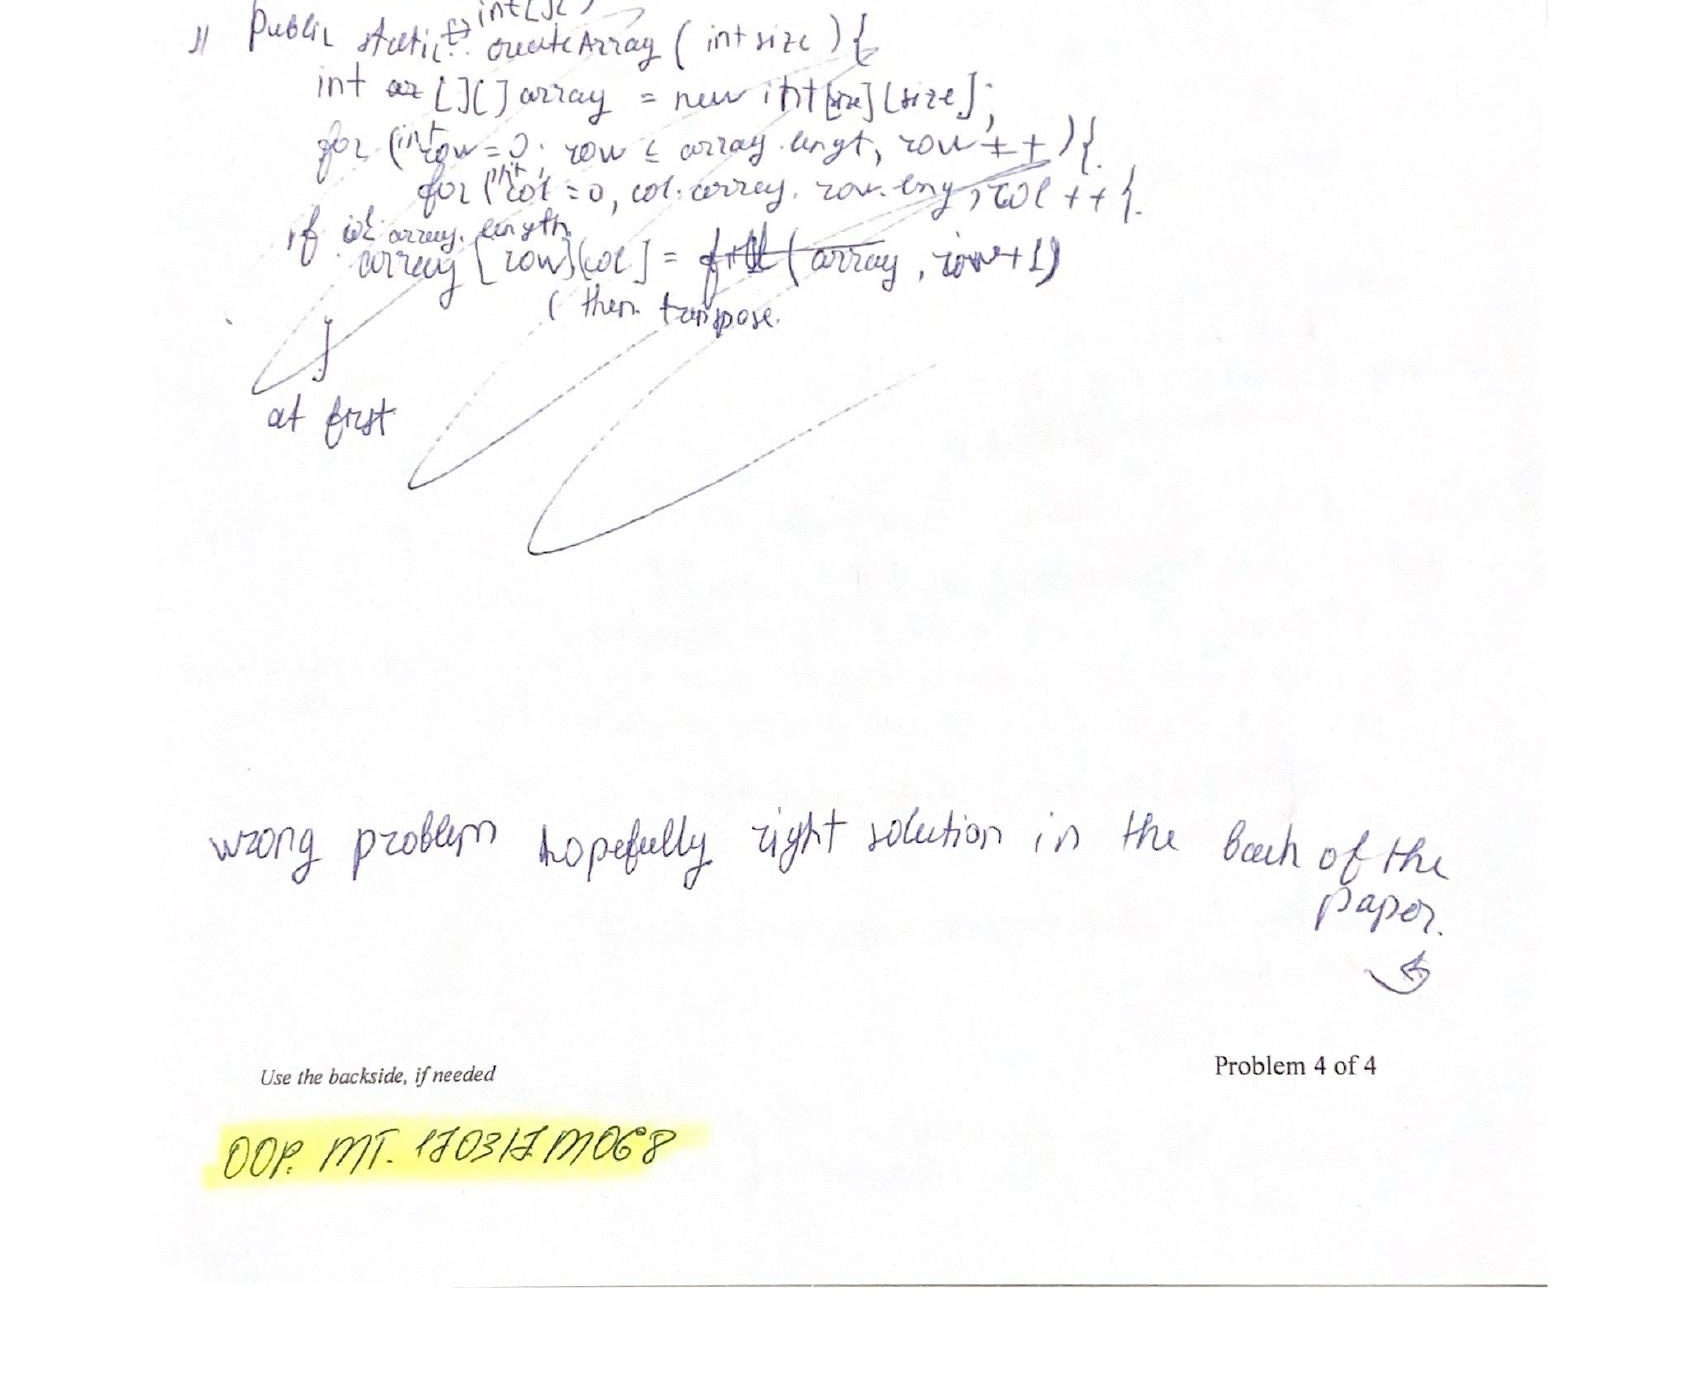 public static int[][] createArray (int size) {
int ar [][] array = new int[size][size];
for (int row = 0; row ≤ array.lengt, row++) {
for (int col = 0, col. array. row. leng, col++ {
if col array. length
array [row][col] = fill (array, row+1)
( then transpose.
}
at first
wrong problem hopefully right solution in the back of the
paper.
Use the backside, if needed
Problem 4 of 4
OOP. MT. 170317. M068